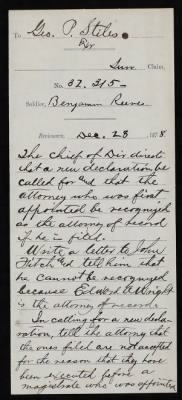 To Geo. P. Stiles
Exr
Inv. Claim,
No. 32.315-
Soldier, Benjamin Reeves
Reviewer, Dec. 28, 1878.
The chief of Div directs
that a new declaration be
called for and that the
attorney who was first
appointed be recognized
as the attorney of record
if he is field.
Write a letter to John
Fitch and tell him that
he cannot be recognized
because Edward A Wright
is the attorney of record.
In calling for a new decla-
ration, tell the attorney that
the ones filed are not accepted
for the reason that they have
been executed before a
magistrate who was appointed